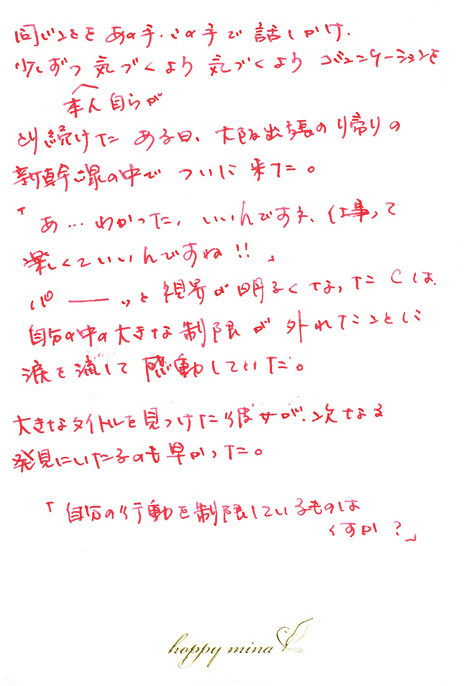 同じことを あの手・この手で 話しかけ、
少しずつ 気づくよう 気づくよう コミュニケーションを
本人自らが
とり続けた ある日、大阪出張の帰りの
新幹線の中で ついに 来た。
「あ…わかった、いいんですネ、仕事って
楽しくていいんですね!!」
パ──ッと 視界が 明るくなった Cは、
自分の中の大きな制限が 外れたことに
涙を流して 感動していた。
大きなタイトルを見つけた彼女が、次なる
発見にいたるのも早かった。
「自分の行動を制限しているものは
何か?」
happy mina